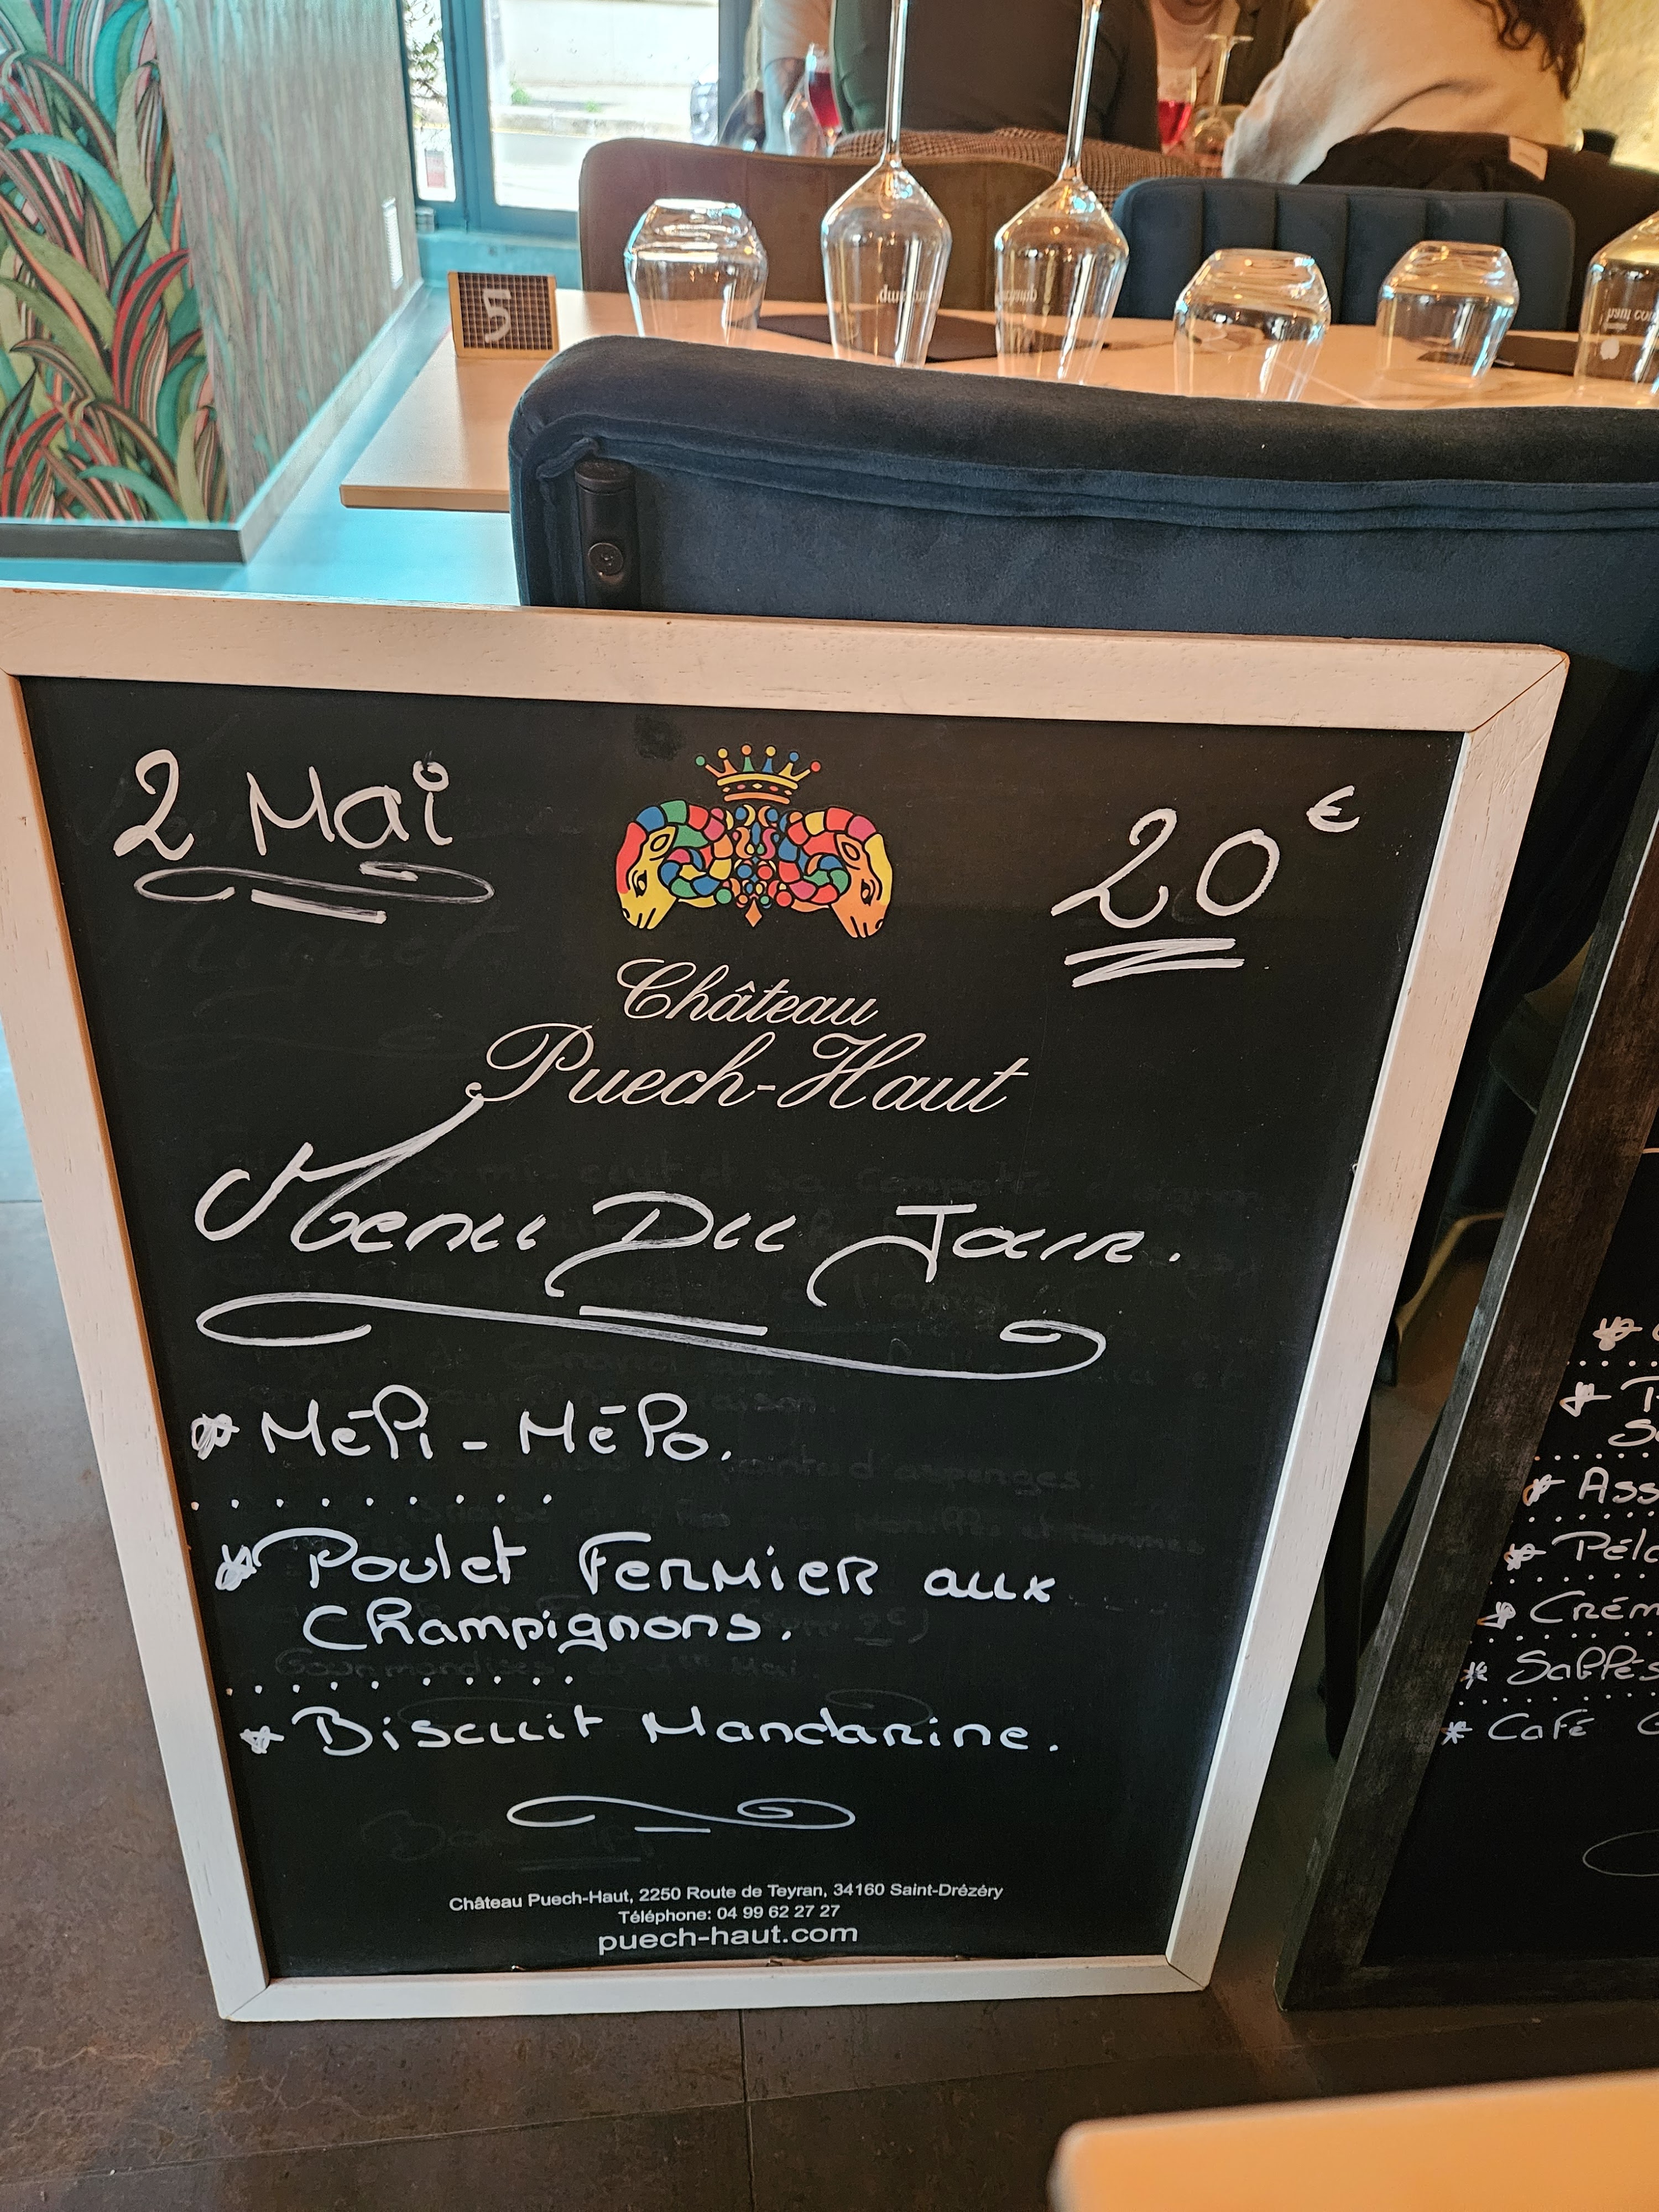 5
2 Mai
20€
Château
Puech-Haut
Menu Du Jour.
* MéPi - MéPo.
* Poulet Fermier aux
Champignons.
* Biscuit Mandarine.
Château Puech-Haut, 2250 Route de Teyran, 34160 Saint-Drézéry
Téléphone: 04 99 62 27 27
puech-haut.com
* Ass
* Péla
* Crém
* Café G